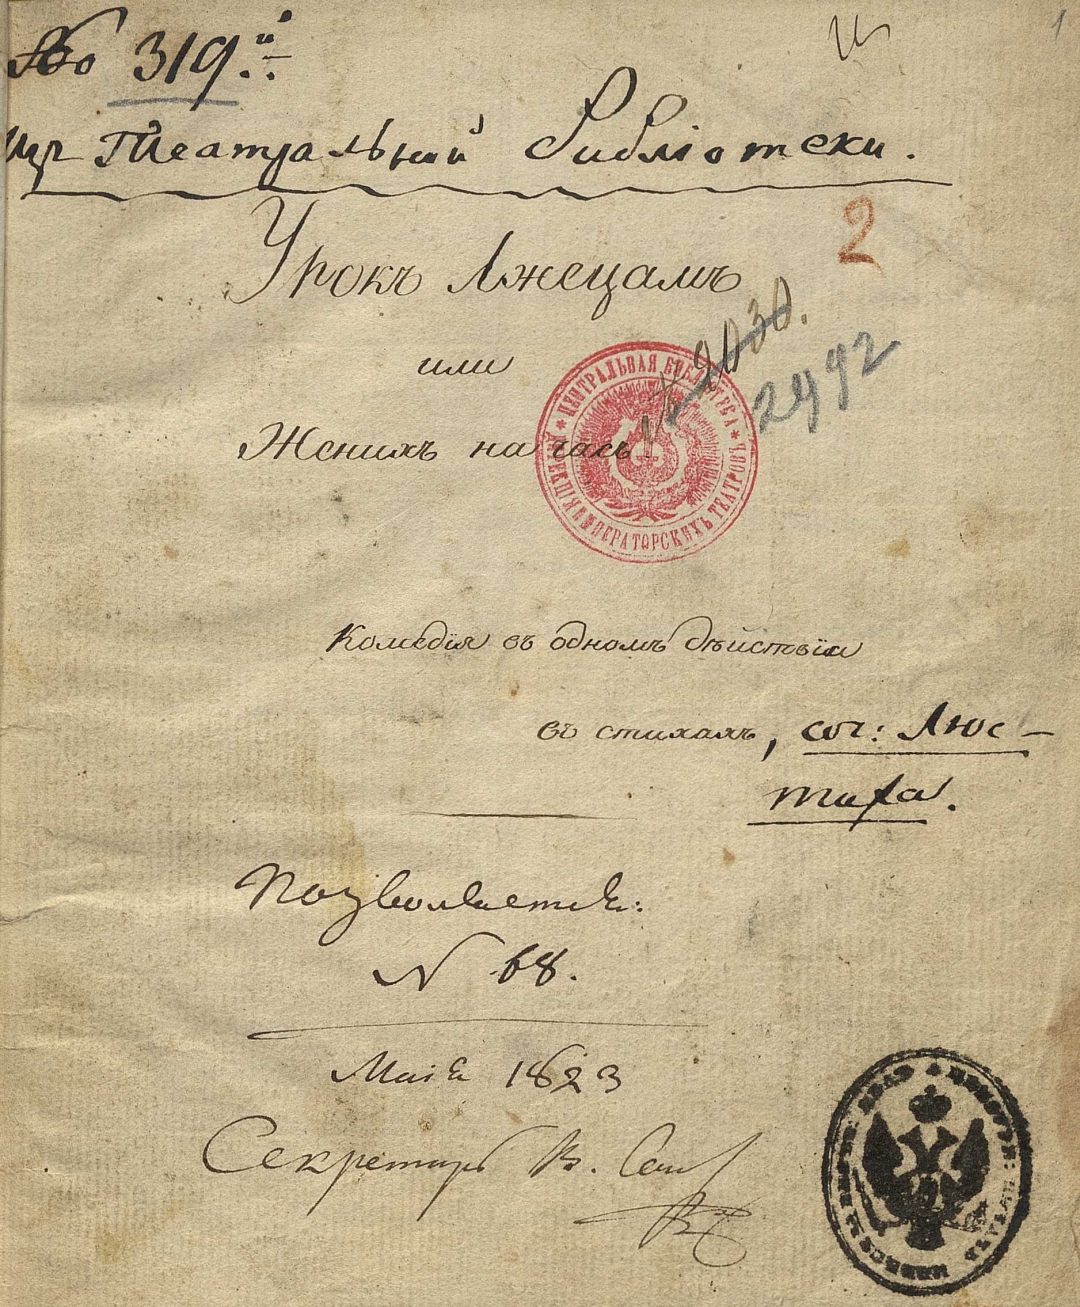 И
1
№ 319.й
изъ Театральной Библіотеки.
2
Урокъ Лжецамъ
или
№ 2030.
2992
Женихъ на часъ!
ЦЕНТРАЛЬНАЯ БИБЛІОТЕКА * ДИРЕКЦІЯ ИМПЕРАТОРСКИХЪ ТЕАТРОВЪ *
Комедія въ одномъ дѣйствіи
въ стихахъ, соч: Люс-
тиха.
Позволяется:
N 68.
Маія 1823
Секретарь В.